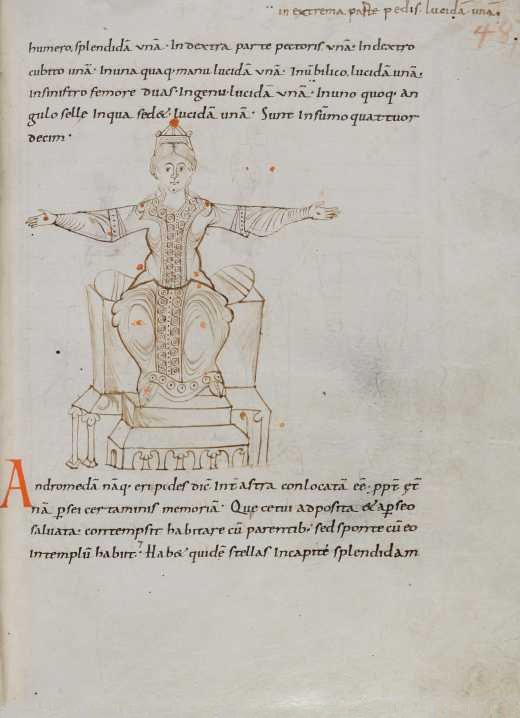 in extrema parte pedis. lucidā. unā.
48
humero, splendidā unā. In dextra parte pectoris unā. In dextro
cubito unā. In una quaq. manu lucidā unā. In ūbilico, lucidā unā.
In sinistro femore duas. In genu lucidā unā. In uno quoq. an
gulo selle In qua sed&, lucidā unā. Sunt In sūmo quattuor
decim.
Andromedā nāq. eripides dic̄ Int̄ astra conlocatā eē.
nā persei certaminis memoriā. Que cetui adposita & a perseo
saluata. contempsit habitare cū parentib; sed sponte cū eo
In templū habit. Hab& quidē stellas In capite splendidam